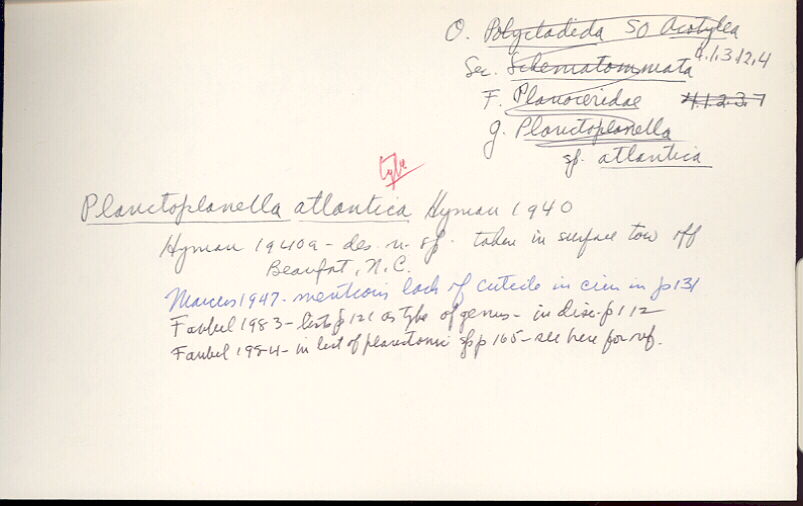 O. Polycladida SO Acotylea
Sec. Schematommata 4.1.3.12.4
F. Planoceridae 4.1.2.3.7
g. Planctoplanella
sp. atlantica
type
Planctoplanella atlantica Hyman 1940
Hyman 1940a - des. n. sp. taken in surface tow off
Beaufort, N.C.
Marcus 1947 - mentions lack of cuticle in cirr in p 131
Faubel 1983 - lists p 121 as type of genus - in disc. p 112
Faubel 1984 - in list of planctonic sp p 165 - see here for ref.